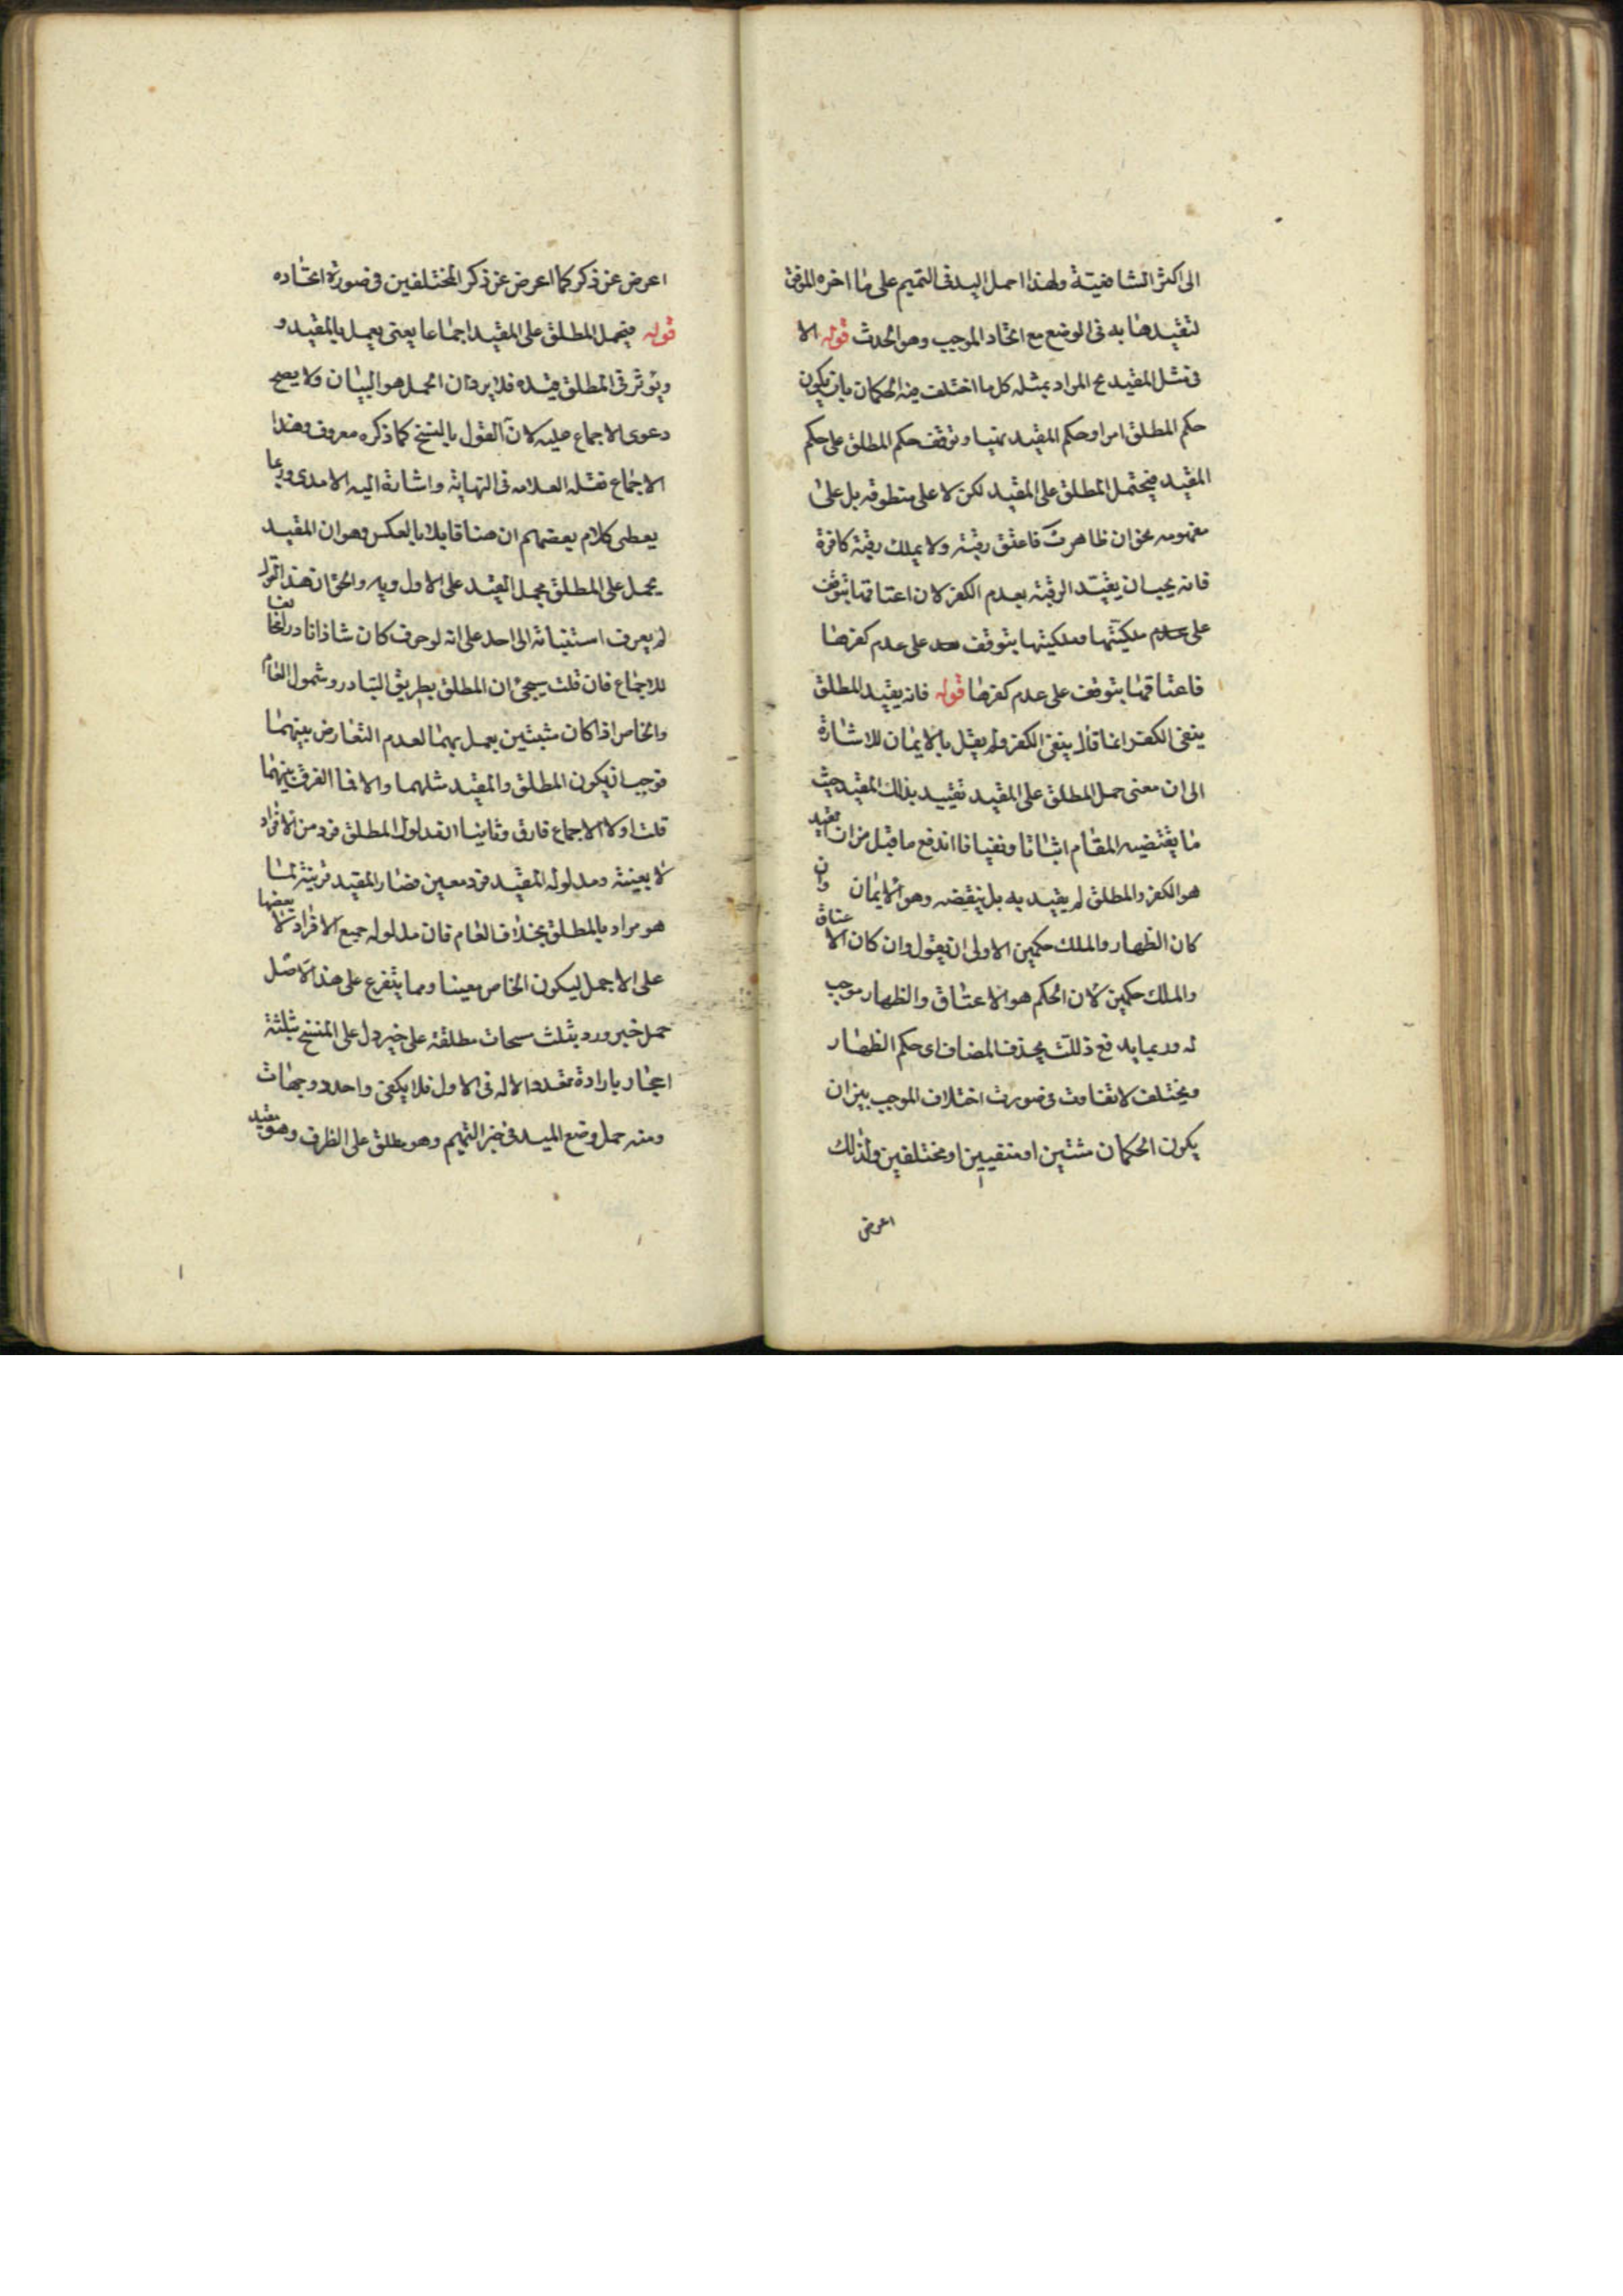 الى اكثر الشافعية ولهذا حمل اليد فى التيمم على ما اخره المرفق
لتقيدها به فى الوضع مع اتحاد الموجب وهو الحدث قوله الا
فى مثل المقيد مح المراد بمثله كل ما اختلف فيه الحكمان بان يكون
حكم المطلق امرا وحكم المقيد نهيا وتوقف حكم المطلق على حكم
المقيد فيحتمل المطلق على المقيد لكن لا على منطوقه بل على
مفهومه نحو ان ظاهرت فاعتق رقبة ولا يملك رقبة كافرة
فانه يجب ان يقيد الرقبة بعدم الكفر لان اعتاقها يتوقف
على ملكيتها وملكيتها يتوقف على عدم كفرها
فاعتاقها يتوقف على عدم كفرها قوله فانه يقيد المطلق
بنفى الكفر انما قال بنفى الكفر ولم يقل بالايمان للاشارة
الى ان معنى حمل المطلق على المقيد تقييد بذلك المقيد حيث
ما يقتضيه المقام اثباتا ونفيا فاندفع ما قيل من ان المقيد
هو الكفر والمطلق لم يقيد به بل بنقيضه وهو الايمان وان
كان الظهار والملك حكمين الاولى ان يقول وان كان الاعتاق
والملك حكمين لان الحكم هو الاعتاق والظهار موجب
له وربما يدفع ذلك بحذف المضاف اى حكم الظهار
ويختلف لاتفاوت فى صورت اختلاف الموجب بين ان
يكون الحكمان مثبتين او منفيين او مختلفين ولذلك
اعرض
اعرض عن ذكر كما اعرض عن ذكر المختلفين فى صورة اتحاده
قوله فيحمل المطلق على المقيد اجماعا يعنى يعمل بالمقيد و
ويؤثر فى المطلق قيده فلا يرد ان الحمل هو البيان ولا يصح
دعوى الاجماع عليه لان القول بالنسخ كما ذكره معروف وهذا
الاجماع نقله العلامه فى النهاية واشارة اليه الامدى وربما
يعطى كلام بعضهم ان هنا قايلا بالعكس وهو ان المقيد
يحمل على المطلق بحمل القيد على الاولويه والحق ان هذا القول
لم يعرف استنباته الى احد على انه لو عرف كان شاذا نادر مخالفا
للاجماع فان قلت سيجئ ان المطلق بطريق التبادر وشمول العام
والخاص اذا كان مثبتين يعمل بهما لعدم التعارض بينهما
فوجب ان يكون المطلق والمقيد مثلهما والا فما الفرق بينهما
قلت اولا الاجماع فارق وثانيا ان مدلول المطلق فرد من الافراد
لا بعينه ومدلوله المقيد فرد معين فصار المقيد قرينة لما
هو مراد بالمطلق بخلاف العام فان مدلوله جميع الافراد لا بعضها
على الاجمل ليكون الخاص معينا ومما يتفرع على هذا الاصل
حمل خبر ورد بثلث مسحات مطلقة على خبر دل على المسح بثلثة
احجار بارادة تعدد الاله فى الاول فلا يكفى واحد ذو جهات
ومنه حمل وضع اليد فى خبر التيمم وهو مطلق على الظرف وهو مقيد